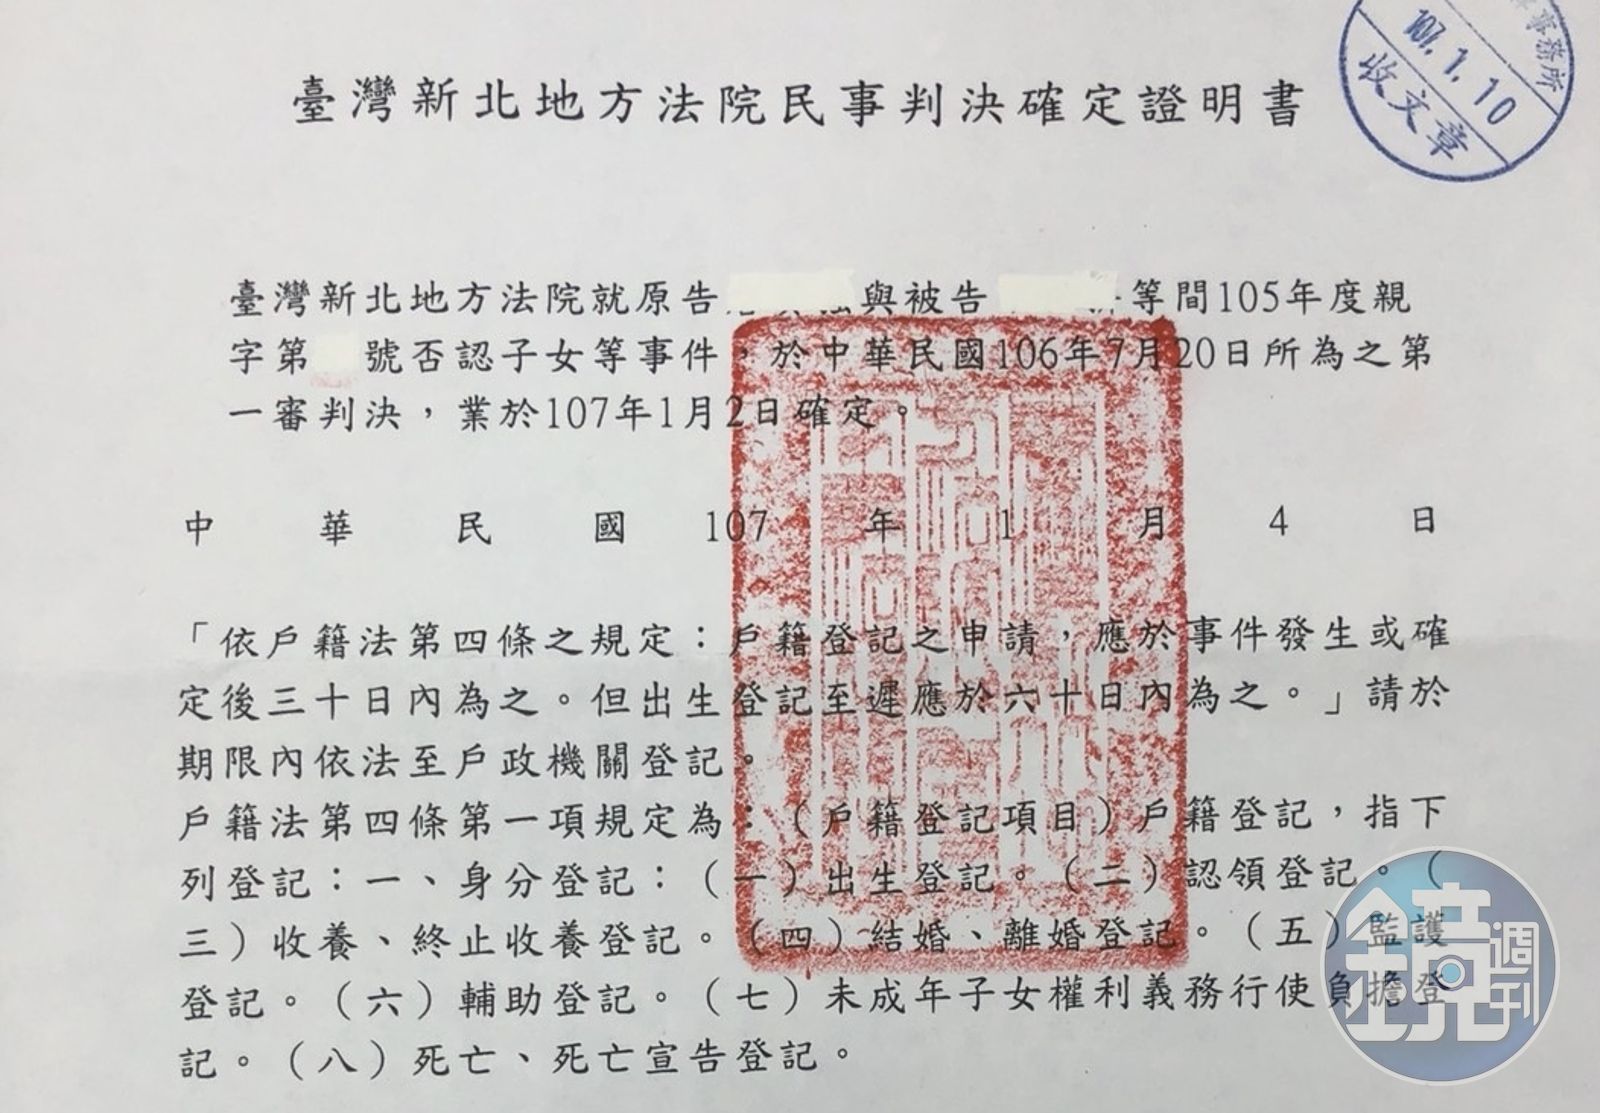 事務所
107.1.10
收文章
臺灣新北地方法院民事判決確定證明書
臺灣新北地方法院就原告 與被告 等間105年度親
字第 號否認子女等事件，於中華民國106年7月20日所為之第
一審判決，業於107年1月2日確定。
中華民國107年1月4日
「依戶籍法第四條之規定：戶籍登記之申請，應於事件發生或確
定後三十日內為之。但出生登記至遲應於六十日內為之。」請於
期限內依法至戶政機關登記。
戶籍法第四條第一項規定為：（戶籍登記項目）戶籍登記，指下
列登記：一、身分登記：（一）出生登記。（二）認領登記。（
三）收養、終止收養登記。（四）結婚、離婚登記。（五）監護
登記。（六）輔助登記。（七）未成年子女權利義務行使負擔登
記。（八）死亡、死亡宣告登記。
鏡週刊